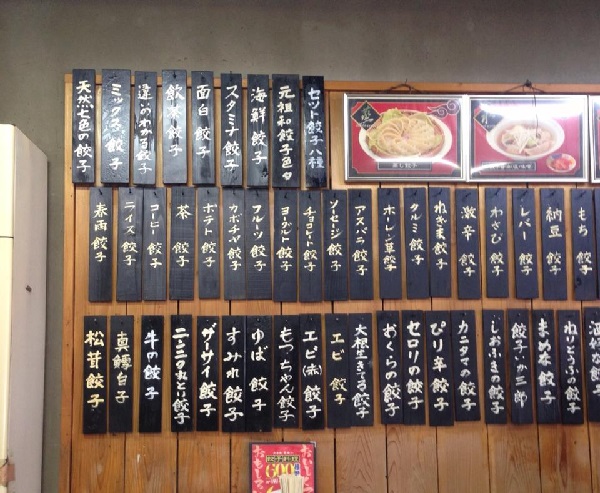 セット餃子八種
元祖和餃子色々
海鮮餃子
スタミナ餃子
面白餃子
飲茶餃子
違いのわかる餃子
ミックス餃子
天然七色の餃子
もち餃子
納豆餃子
レバー餃子
わさび餃子
激辛餃子
ねぎま餃子
タルミ餃子
ホーレン草餃子
アスパラ餃子
ソーセージ餃子
チョコレート餃子
ヨーグルト餃子
フルーツ餃子
カボチャ餃子
ポテト餃子
茶餃子
コーヒー餃子
ライス餃子
春雨餃子
ねりとうふの餃子
まめ本餃子
餃子いか三郎
しおふきの餃子
カニタマの餃子
ぴり辛餃子
セロリの餃子
おくらの餃子
大根生きてる餃子
エビ餃子
エビ(赤)餃子
もっちゃん餃子
ゆば餃子
すみれ餃子
ザーサイ餃子
牛の餃子
真鱈白子
松茸餃子
蒸し餃子
600